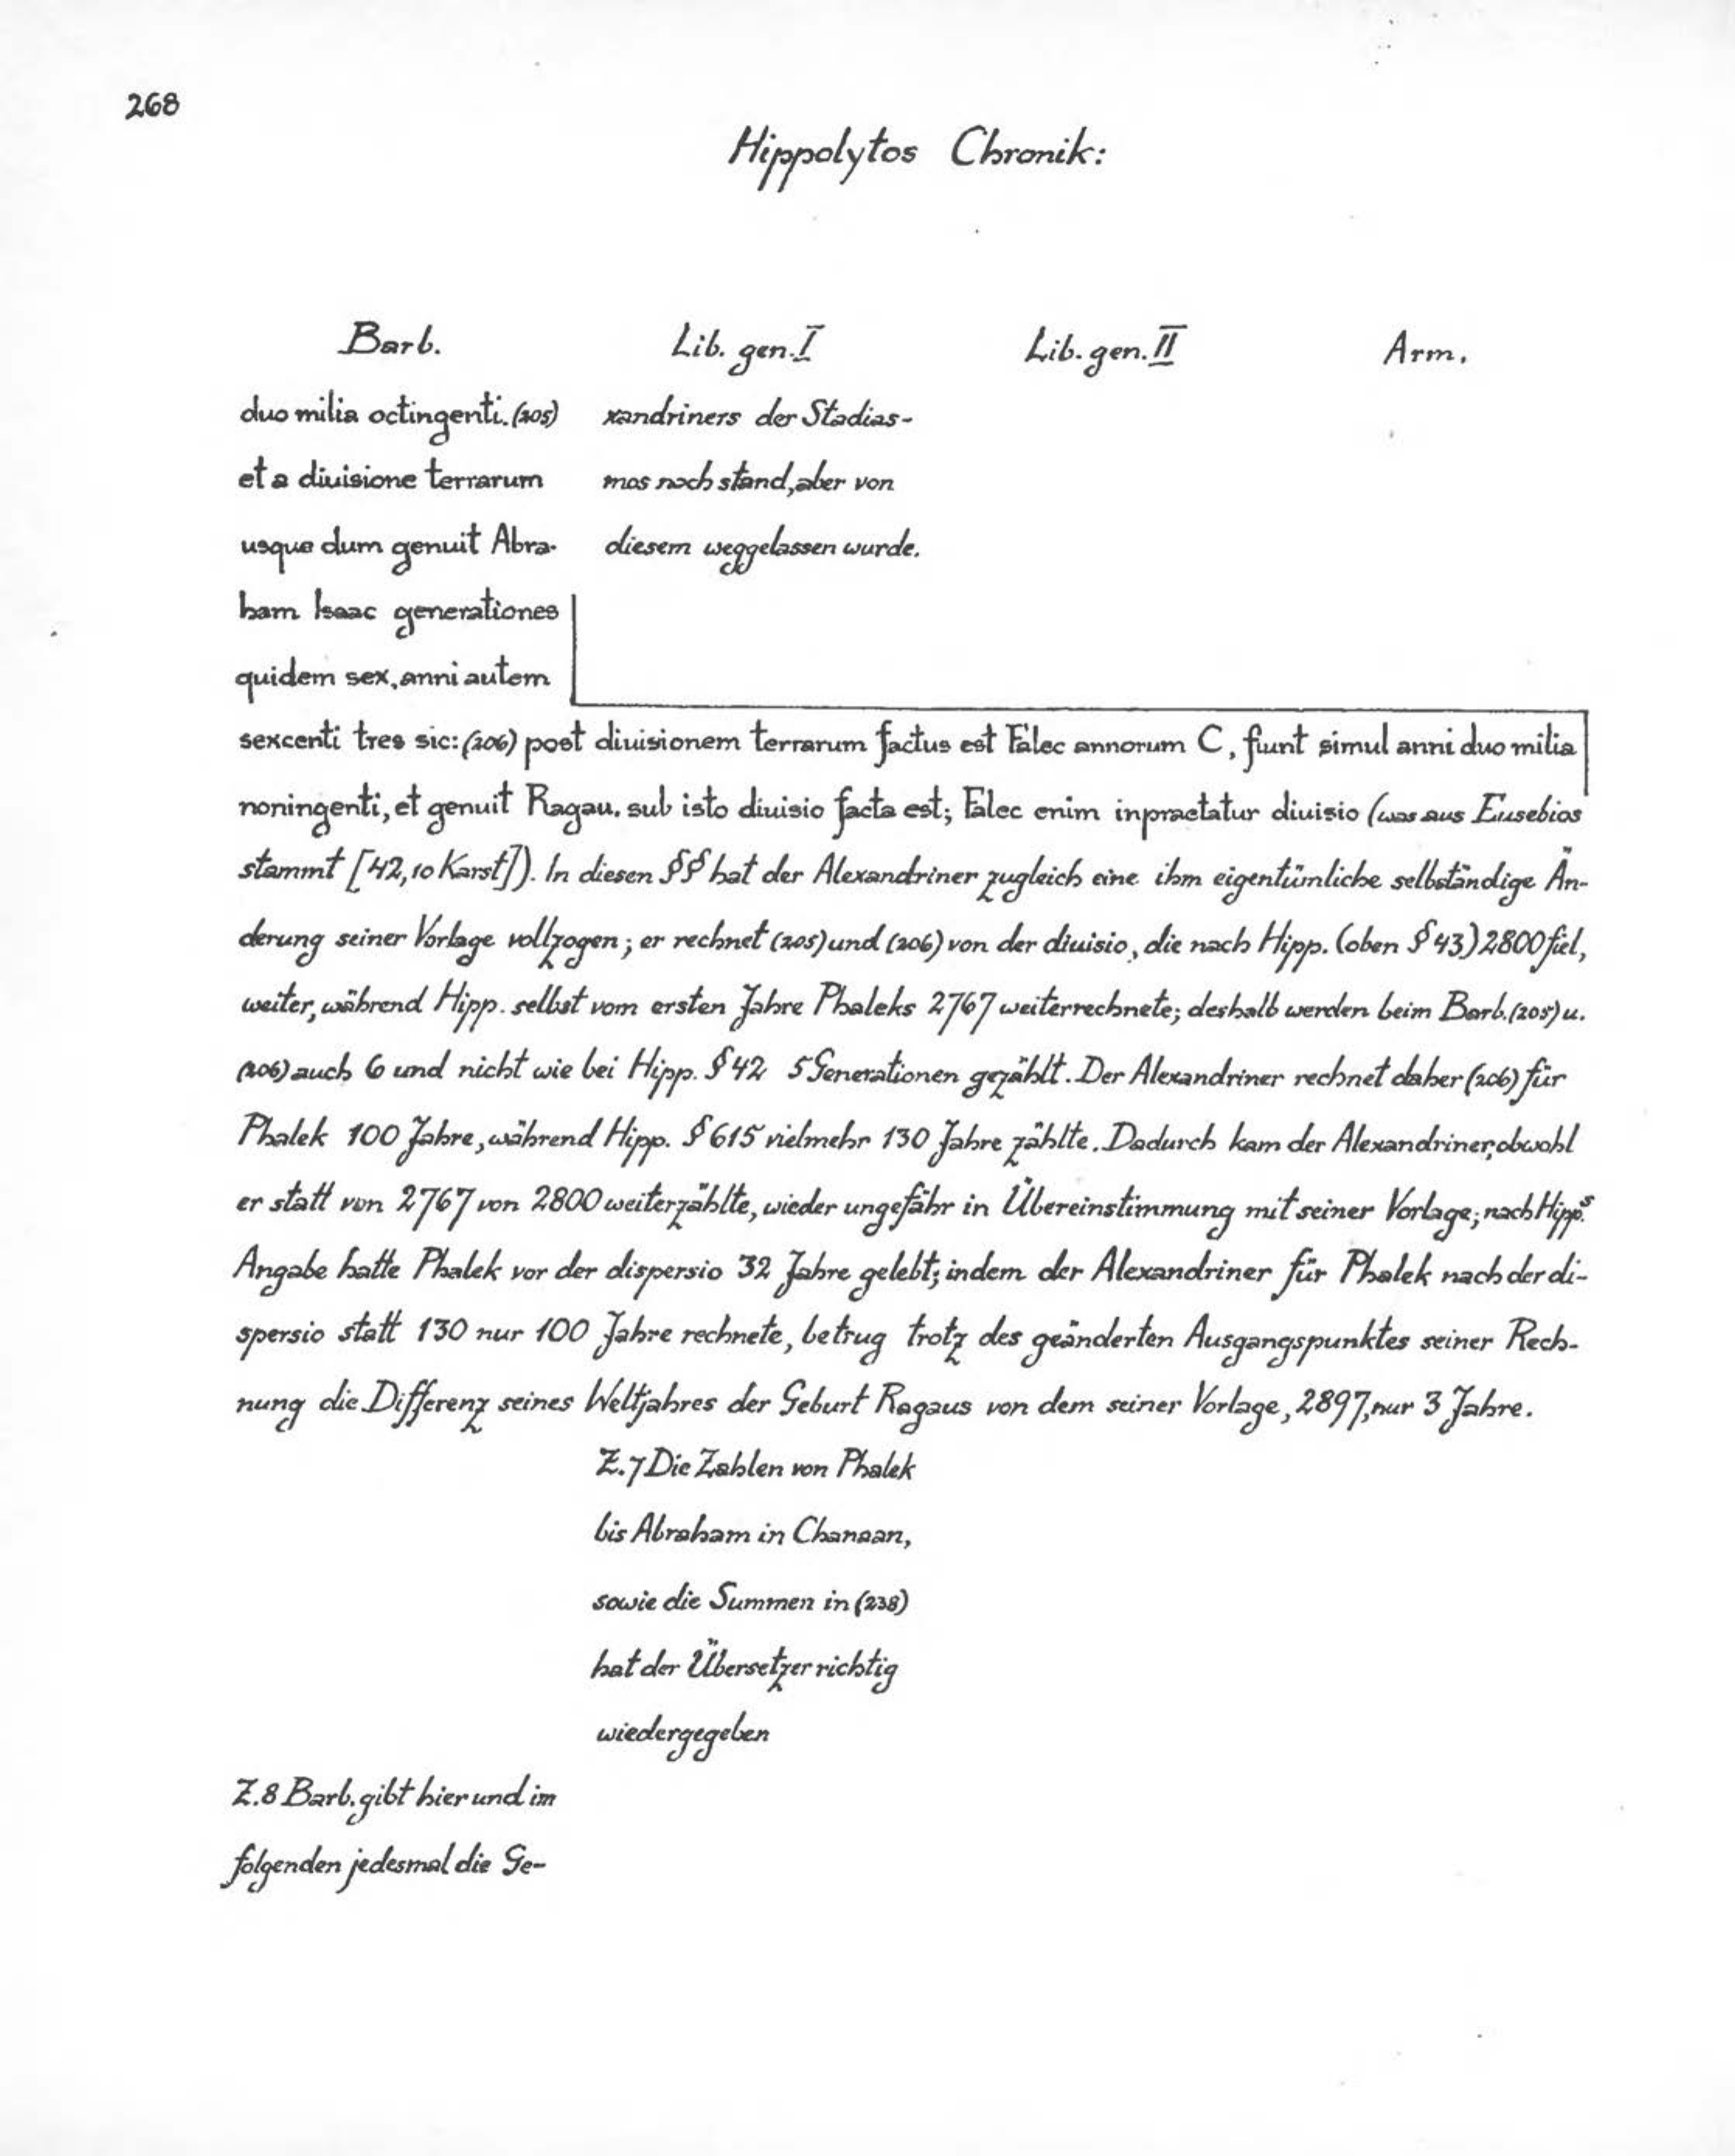 268
Hippolytos Chronik:
Barb.
Lib. gen. I
Lib. gen. II
Arm.
duo milia octingenti. (205)
et a diuisione terrarum
usque dum genuit Abra-
ham Isaac generationes
quidem sex, anni autem
xandriners der Stadias-
mos noch stand, aber von
diesem weggelassen wurde.
sexcenti tres sic: (206) post diuisionem terrarum factus est Falec annorum C, fiunt simul anni duo milia
noningenti, et genuit Ragau. sub isto diuisio facta est; Falec enim inpraetatur diuisio (was aus Eusebios
stammt [42,10 Karst]). In diesen §§ hat der Alexandriner zugleich eine ihm eigentümliche selbständige Än-
derung seiner Vorlage vollzogen; er rechnet (205) und (206) von der diuisio, die nach Hipp. (oben § 43) 2800 fiel,
weiter, während Hipp. selbst vom ersten Jahre Phaleks 2767 weiterrechnete; deshalb werden beim Barb. (205) u.
(206) auch 6 und nicht wie bei Hipp. § 42 5 Generationen gezählt. Der Alexandriner rechnet daher (206) für
Phalek 100 Jahre, während Hipp. § 615 vielmehr 130 Jahre zählte. Dadurch kam der Alexandriner, obwohl
er statt von 2767 von 2800 weiterzählte, wieder ungefähr in Übereinstimmung mit seiner Vorlage; nach Hipp.s
Angabe hatte Phalek vor der dispersio 32 Jahre gelebt; indem der Alexandriner für Phalek nach der di-
spersio statt 130 nur 100 Jahre rechnete, betrug trotz des geänderten Ausgangspunktes seiner Rech-
nung die Differenz seines Weltjahres der Geburt Ragaus von dem seiner Vorlage, 2897, nur 3 Jahre.
Z.7 Die Zahlen von Phalek
bis Abraham in Chanaan,
sowie die Summen in (238)
hat der Übersetzer richtig
wiedergegeben
Z.8 Barb. gibt hier und im
folgenden jedesmal die Ge-